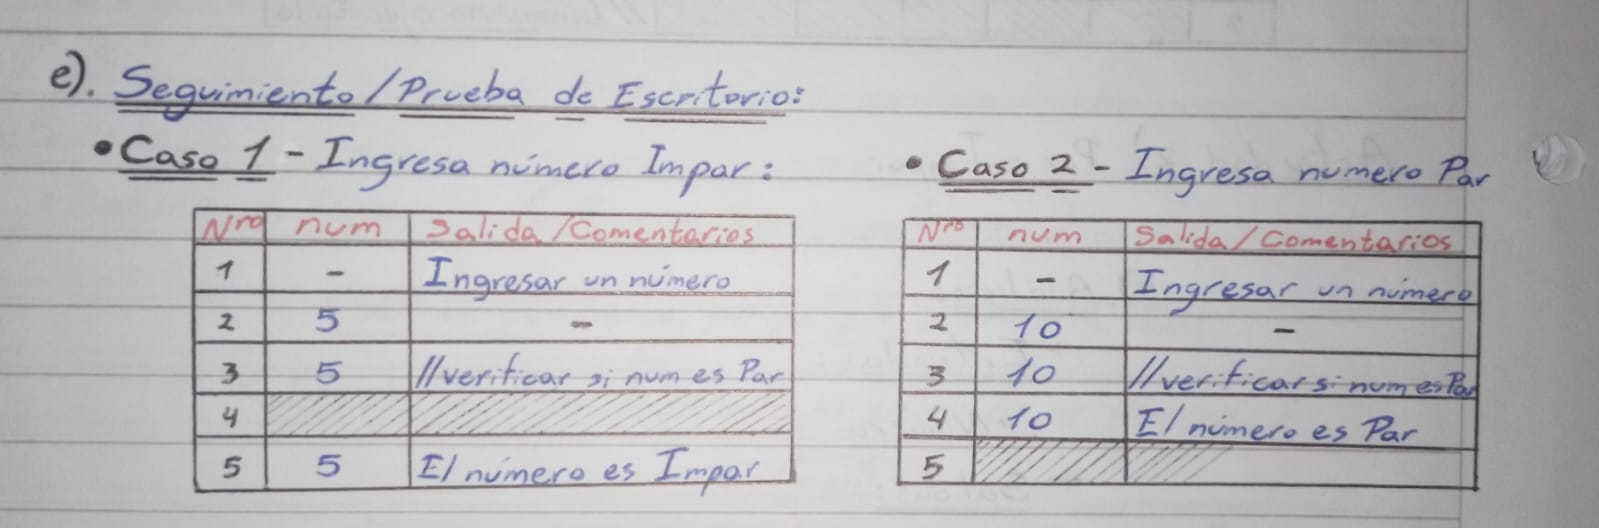 e). Seguimiento / Prueba de Escritorio:
• Caso 1 - Ingresa número Impar:
Nro num Salida/Comentarios
1 - Ingresar un número
2 5 -
3 5 //verificar si num es Par
4
5 5 El número es Impar
• Caso 2 - Ingresa numero Par
Nro num Salida/Comentarios
1 - Ingresar un número
2 10 -
3 10 //verificar si num es Par
4 10 El número es Par
5